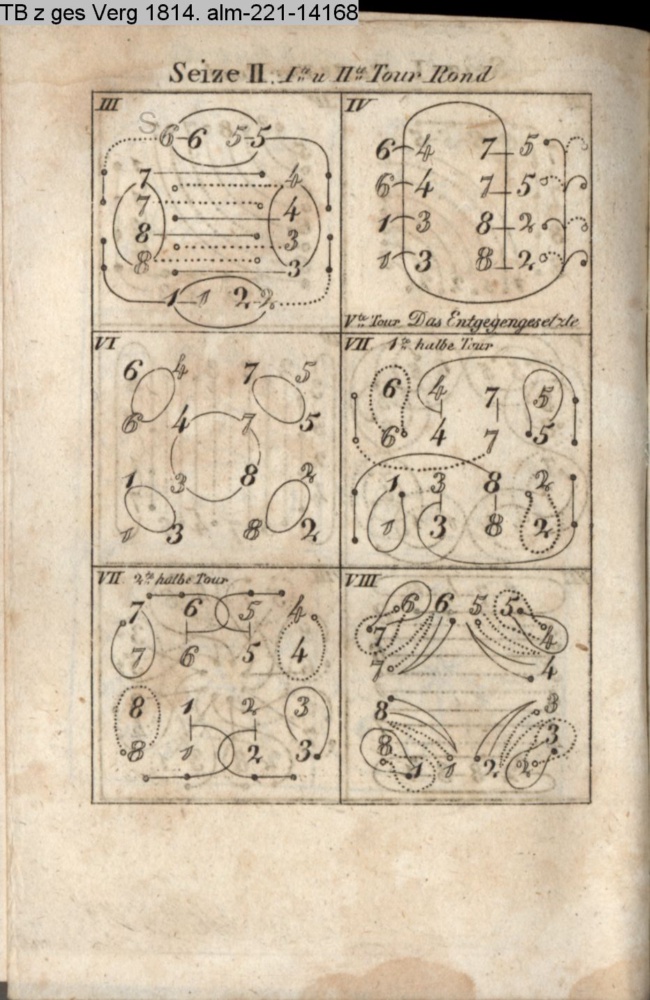 TB z ges Verg 1814. alm-221-14168
Seize II. Ite u IIte Tour Rond
III
S
6 6 5 5
7 4
7 4
8 3
8 3
1 1 2 2
IV
6 4 7 5
6 4 7 5
1 3 8 2
1 3 8 2
Vte Tour Das Entgegengesetzte
VI
6 4 7 5
6 4 7 5
1 3 8 2
1 3 8 2
VII 1te halbe Tour
6 4 7 5
6 4 7 5
1 3 8 2
1 3 8 2
VII 2te halbe Tour
7 6 5 4
7 6 5 4
8 1 2 3
8 1 2 3
VIII
6 6 5 5
7 4
7 4
8 3
8 3
1 1 2 2